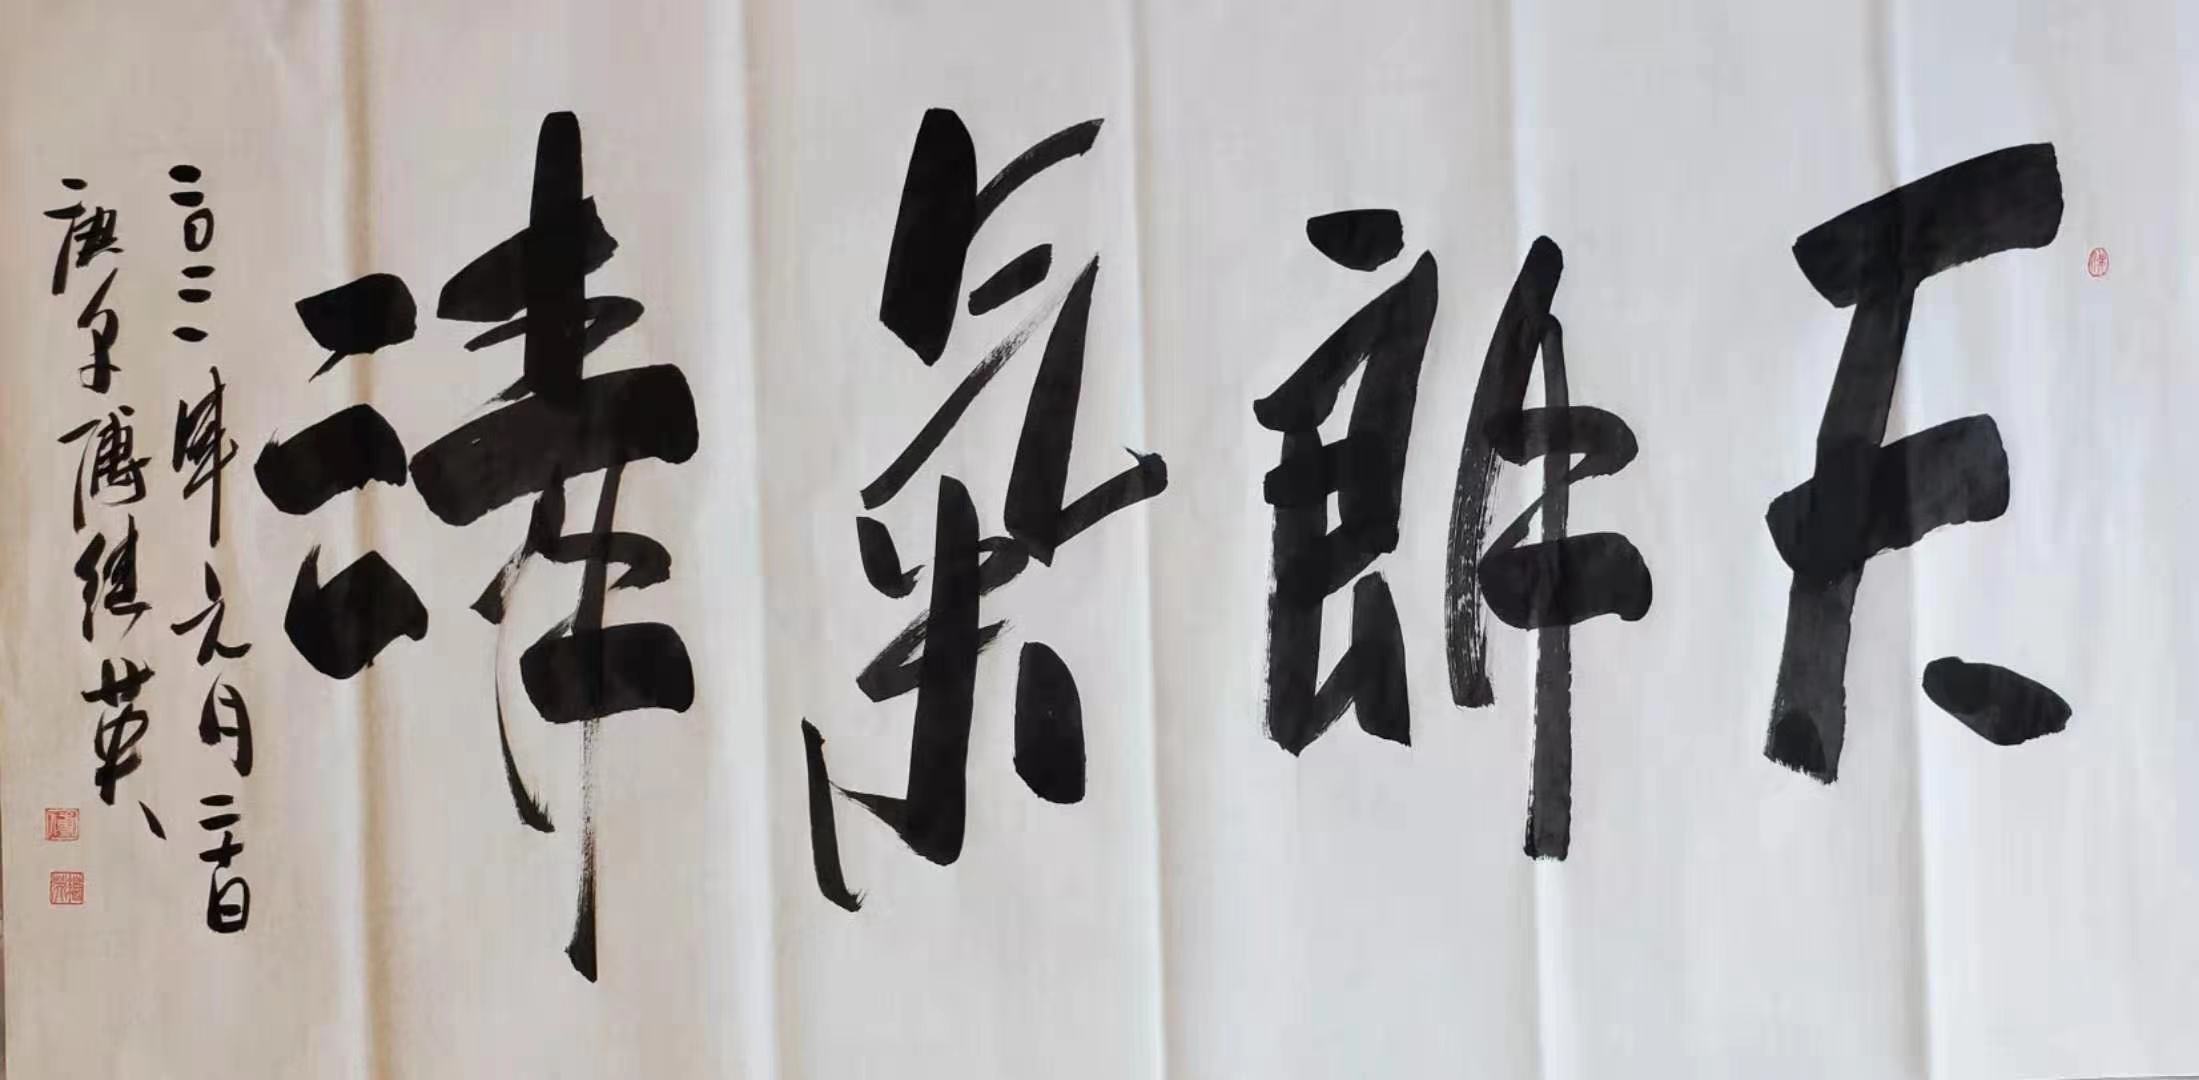 天朗氣清
二〇二一年元月二十日
傅继英